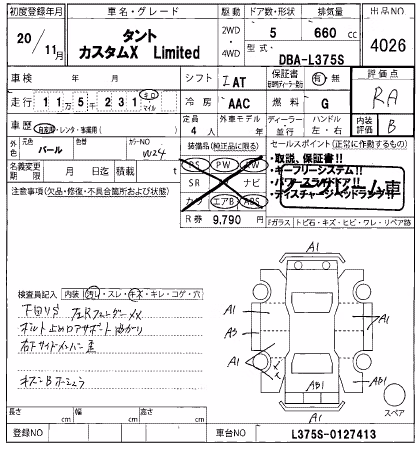 初度登録年月 車名・グレード 駆動 ドア数・形状 排気量 出品NO
20/11月 タント 2WD 5 660cc 4026
カスタムX Limited 4WD 型式: DBA-L375S
車検 年 月 シフト IAT 保証書 有・無 評価点
走行 11万5千231 キロ マイル 冷房 AAC 燃料 G RA
車歴 自家用・レンタ・事業用( ) 定員 4人 外車モデル ディーラー 並行 ハンドル 左・右 内装評価 B
外色 元色 パール カラーNO W24 装備品(純正品に限る) セールスポイント(正常に作動するもの)
名義変更期限 月 日 積載 t PS PW PW ・取説、保証書!!
注意事項(欠品・修復・不具合箇所および状態) SR ナビ ・キーフリーシステム!!
カワ エアB ABS ・パワースライドドア!!
R券 9,790円 ・ディスチャージヘッドランプ!!
クレーム車
Fガラス トビ石・キズ・ヒビ・ワレ・リペア跡
検査員記入 内装 ヨゴレ・スレ・キズ・キレ・コゲ・穴
下回りS
ボルト止めロアサポート曲がり
右下サイドメンバー歪
A1
A1
A3
A1
A1
A1
AB1
AB1
A1
スペア
長さ cm 幅 cm 高さ cm
登録NO 車台NO L375S-0127413